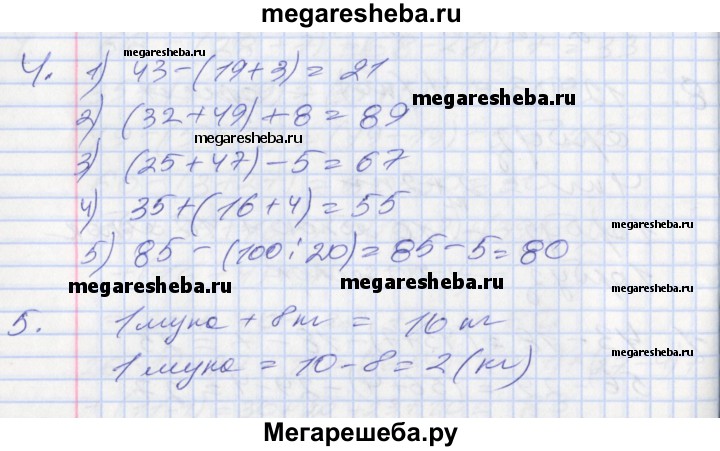 megaresheba.ru
megaresheba.ru
4. 1) 43-(19+3)= 21
megaresheba.ru
megaresheba.ru
2) (32+49)+8=89
megaresheba.ru
3) (25+47)-5=67
4) 35+(16+4)=55
megaresheba.ru
5) 85-(100:20)=85-5=80
megaresheba.ru
megaresheba.ru
megaresheba.ru
5. 1 мука + 8кг = 10 кг
megaresheba.ru
1 мука = 10-8=2(кг)
Мегарешеба.ру